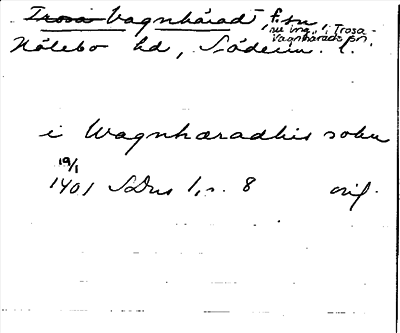 Trosa-Vagnhärad, f. sn
nu ing. i Trosa-
Vagnhärads sn.
Hölebo hd, Söderm. l.
i Wagnhæradhis sokn
19/1
1401 SDns 1, s. 8 orig.